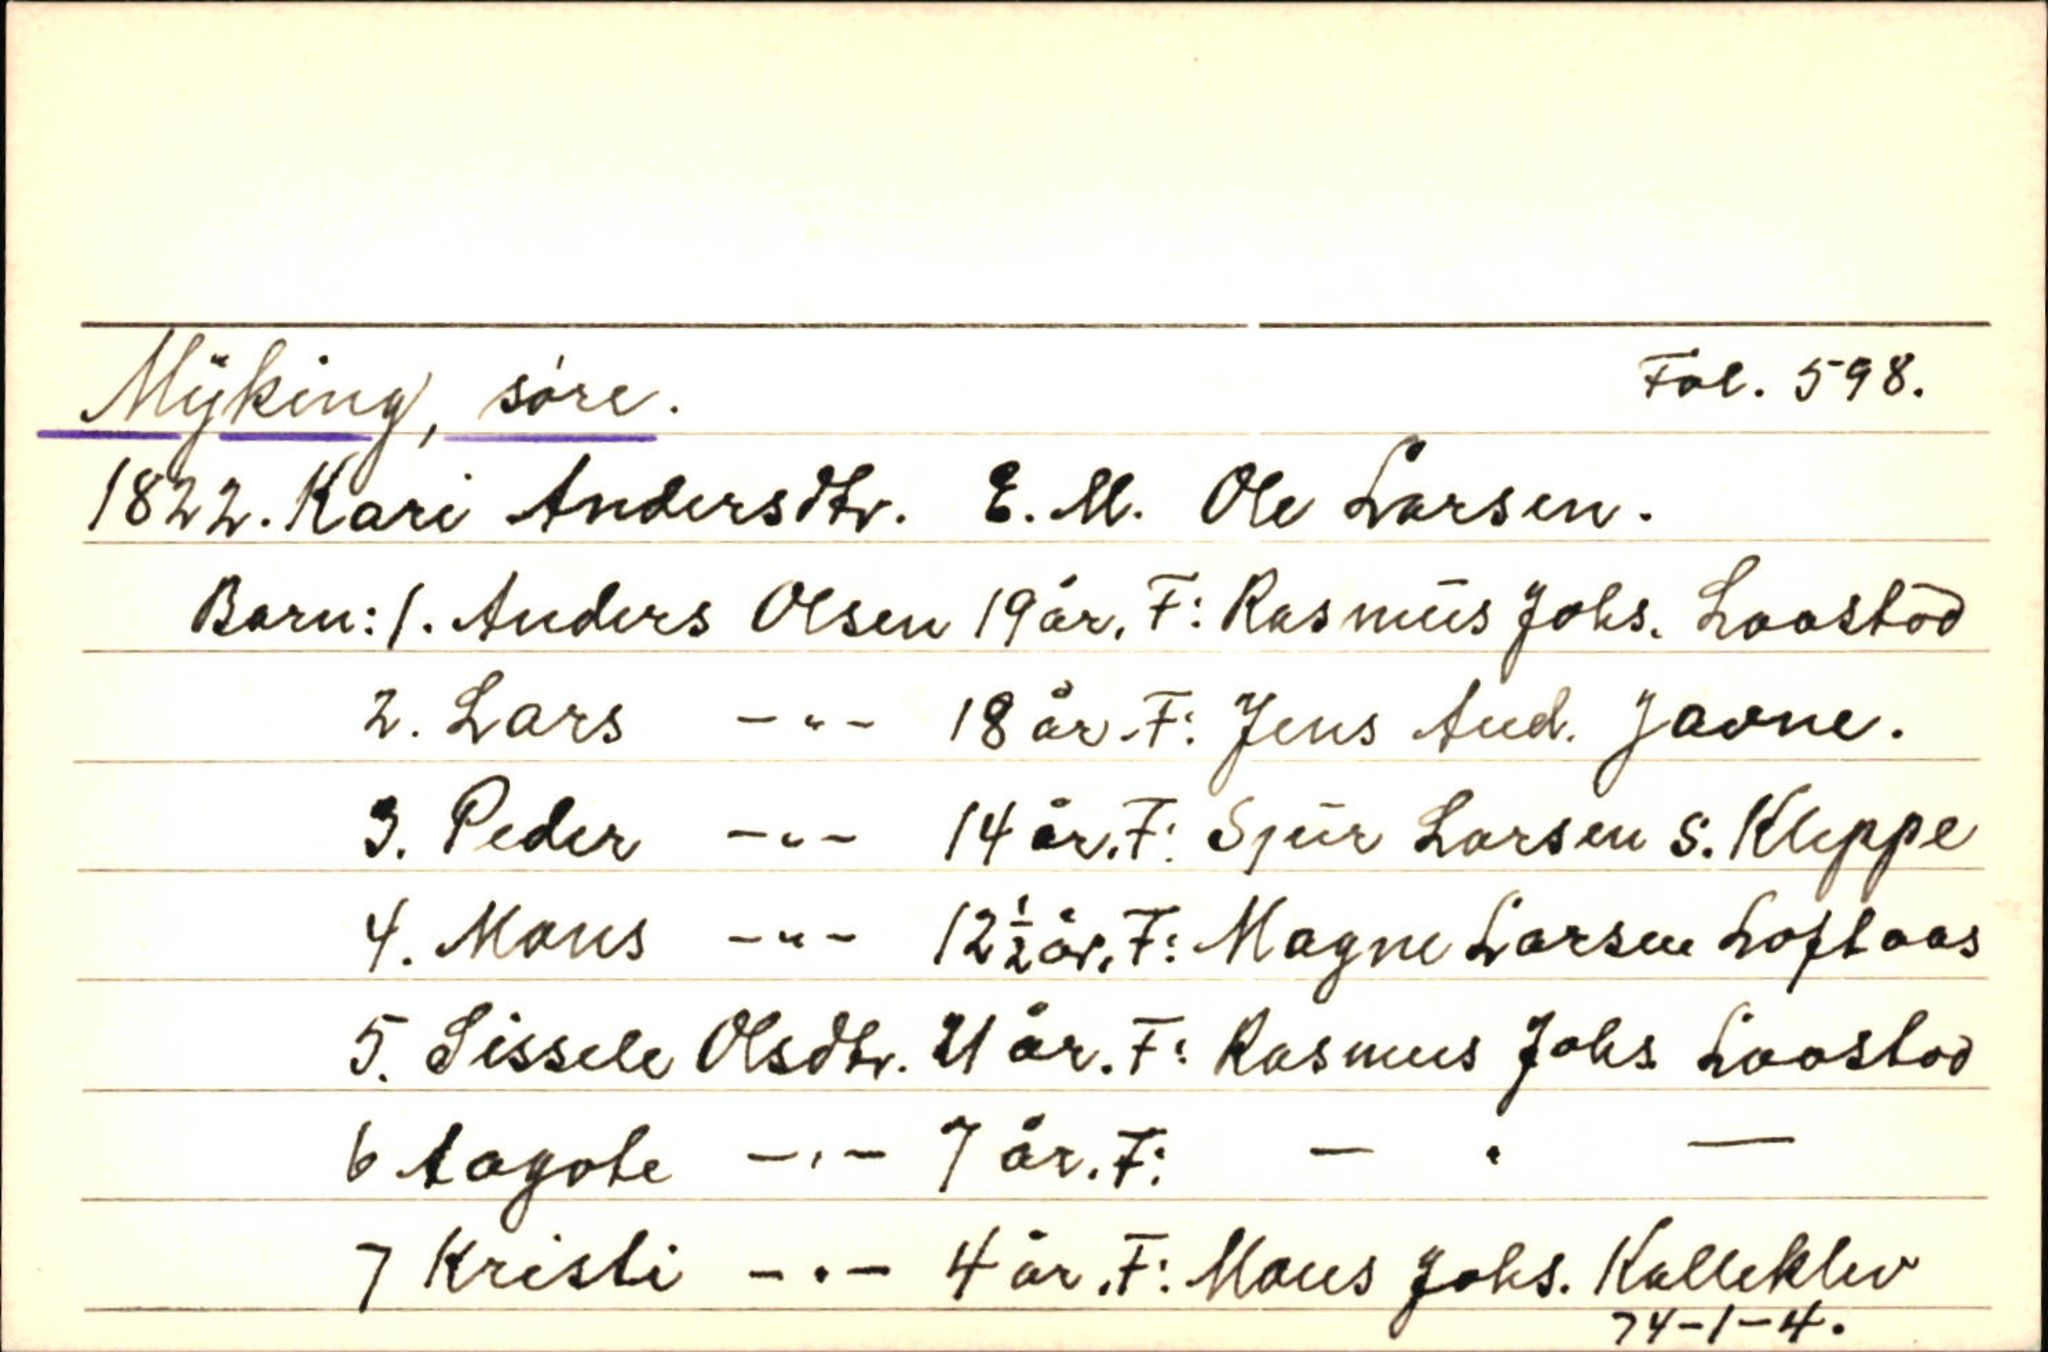 Myking, søre. Fol. 598.
1822. Kari Andersdtr. E. M. Ole Larsen.
Barn: 1. Anders Olsen 19 år. F: Rasmus Johs. Laastød
2. Lars -"- 18 år. F: Jens And. Javne.
3. Peder -"- 14 år. F: Sjur Larsen S. Kleppe
4. Mons -"- 12 1/2 år. F: Magne Larsen Loftaas
5. Sissele Olsdtr. 21 år. F: Rasmus Johs Laastød
6 Aagote -"- 7 år. F: — " —
7 Kristi -"- 4 år. F: Mons Johs. Kalleklev
74-1-4.